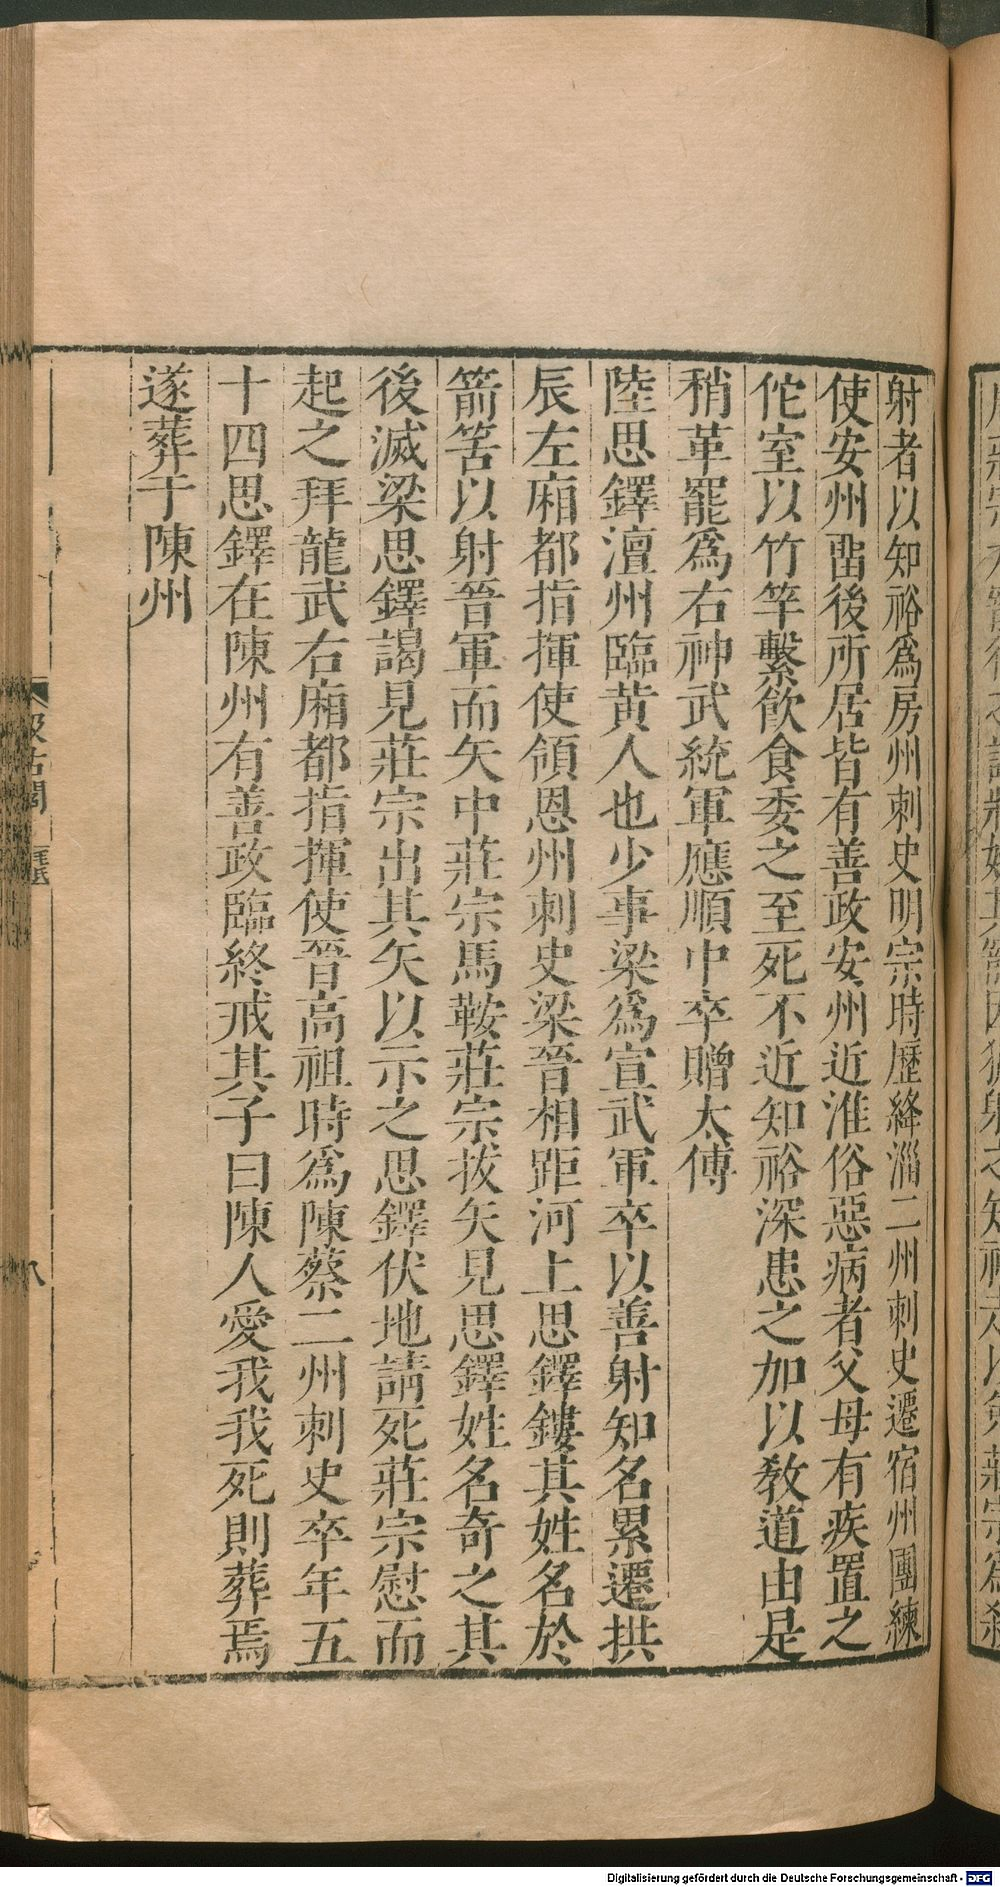 射者以知裕爲房州刺史明宗時歷絳淄二州刺史遷宿州團練
使安州畱後所居皆有善政安州近淮俗惡病者父母有疾置之
佗室以竹竿繫飮食委之至死不近知裕深患之加以敎道由是
稍革罷爲右神武統軍應順中卒贈太傅
陸思鐸澶州臨黄人也少事梁爲宣武軍卒以善射知名累遷拱
辰左廂都指揮使領恩州刺史梁晉相距河上思鐸鏤其姓名於
箭筈以射晉軍而矢中莊宗馬鞍莊宗拔矢見思鐸姓名奇之其
後滅梁思鐸謁見莊宗出其矢以示之思鐸伏地請死莊宗慰而
起之拜龍武右廂都指揮使晉高祖時爲陳蔡二州刺史卒年五
十四思鐸在陳州有善政臨終戒其子曰陳人愛我我死則葬焉
遂葬于陳州
汲古閣
八
Digitalisierung gefördert durch die Deutsche Forschungsgemeinschaft - DFG